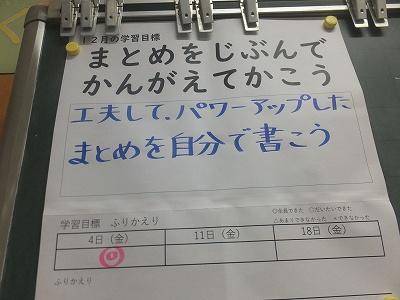 12月の学習目標
まとめをじぶんで
かんがえてかこう
工夫して、パワーアップした
まとめを自分で書こう
学習目標 ふりかえり
◎全員できた ○だいたいできた
△あまりできなかった ×できなかった
4日（金） 11日（金） 18日（金）
◎
ふりかえり